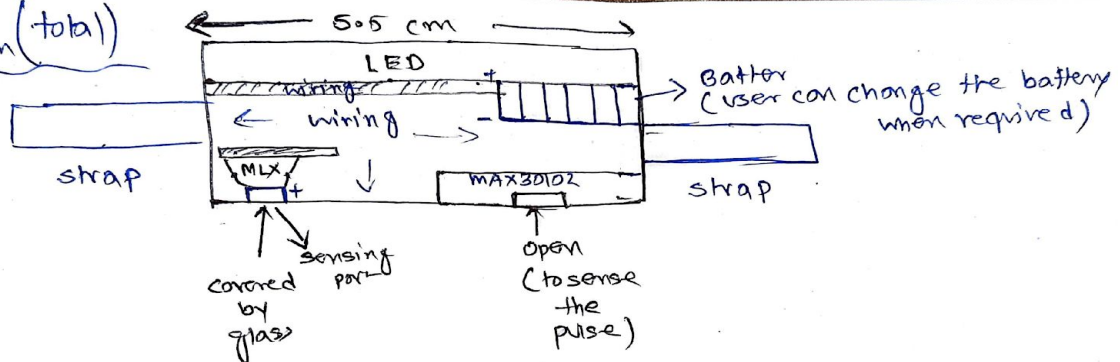 (total)
5.5 cm
LED
wiring
+
Batter
(user can change the battery
when required)
wiring
-
strap
MLX
+
MAX30102
strap
sensing
part
covered
by
glass
open
(to sense
the
pulse)